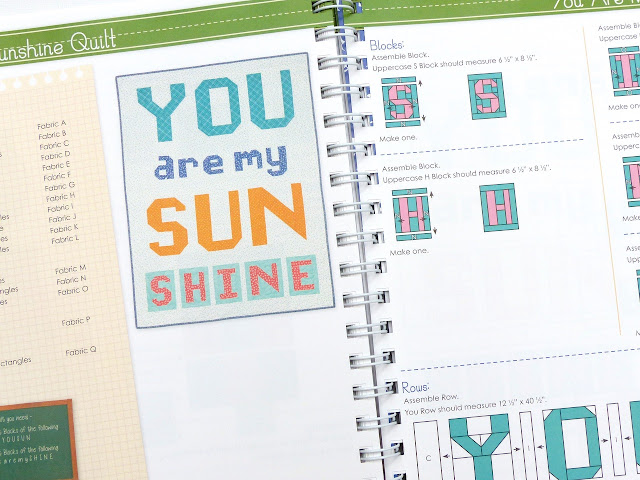 unshine Quilt
Fabric A
Fabric B
Fabric C
Fabric D
Fabric E
Fabric F
Fabric G
Fabric H
Fabric I
Fabric J
Fabric K
Fabric L
Fabric M
Fabric N
Fabric O
Fabric P
Fabric Q
Blocks of the following
YOUSUN
Blocks of the following
aremySHINE
YOU
are my
SUN
SHINE
You Are
Blocks:
Assemble Block.
Uppercase S Block should measure 6 ½" x 8 ½".
S S
Make one.
Assemble Block.
Uppercase H Block should measure 6 ½" x 8 ½".
H H
Make one.
Rows:
Assemble Row.
You Row should measure 12 ½" x 40 ½".
C Y I O I
Assemble Bl
Uppercase
Make one.
Assemble Bl
Uppercase
Make one.